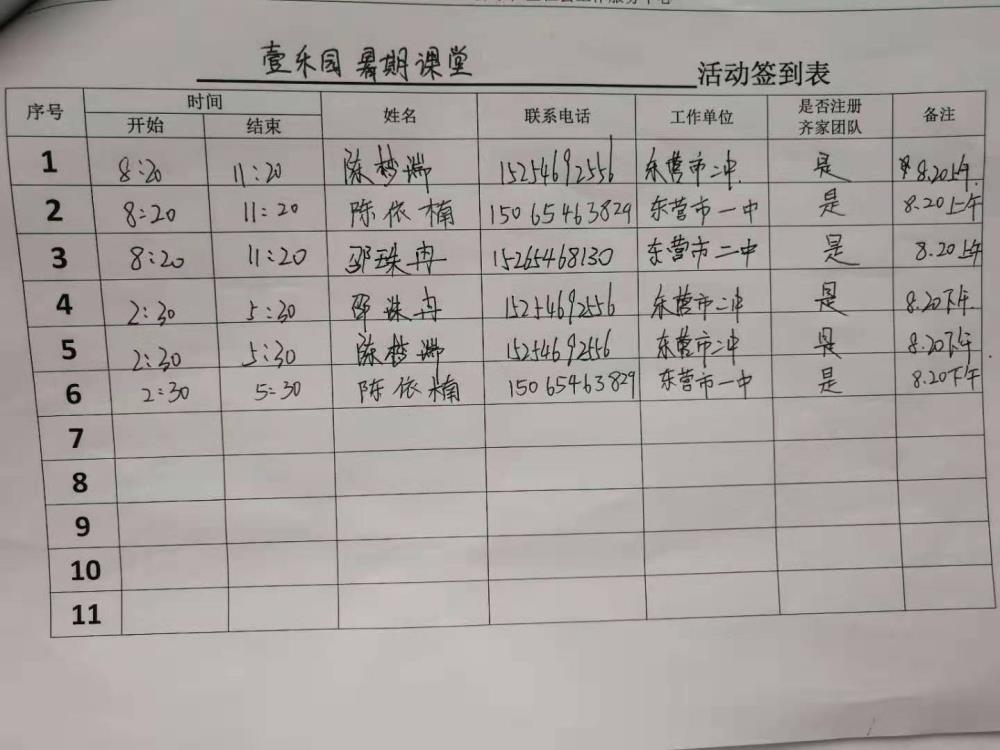 壹乐园 暑期课堂 活动签到表
序号 时间 姓名 联系电话 工作单位 是否注册齐家团队 备注
开始 结束
1 8:20 11:20 陈梦端 15254692556 东营市二中 是 8.20上午
2 8:20 11:20 陈依楠 15065463829 东营市一中 是 8.20上午
3 8:20 11:20 邵珠冉 15265468130 东营市二中 是 8.20上午
4 2:30 5:30 邵珠冉 15254692556 东营市二中 是 8.20下午
5 2:30 5:30 陈梦端 15254692556 东营市二中 是 8.20下午
6 2:30 5:30 陈依楠 15065463829 东营市一中 是 8.20下午
7
8
9
10
11